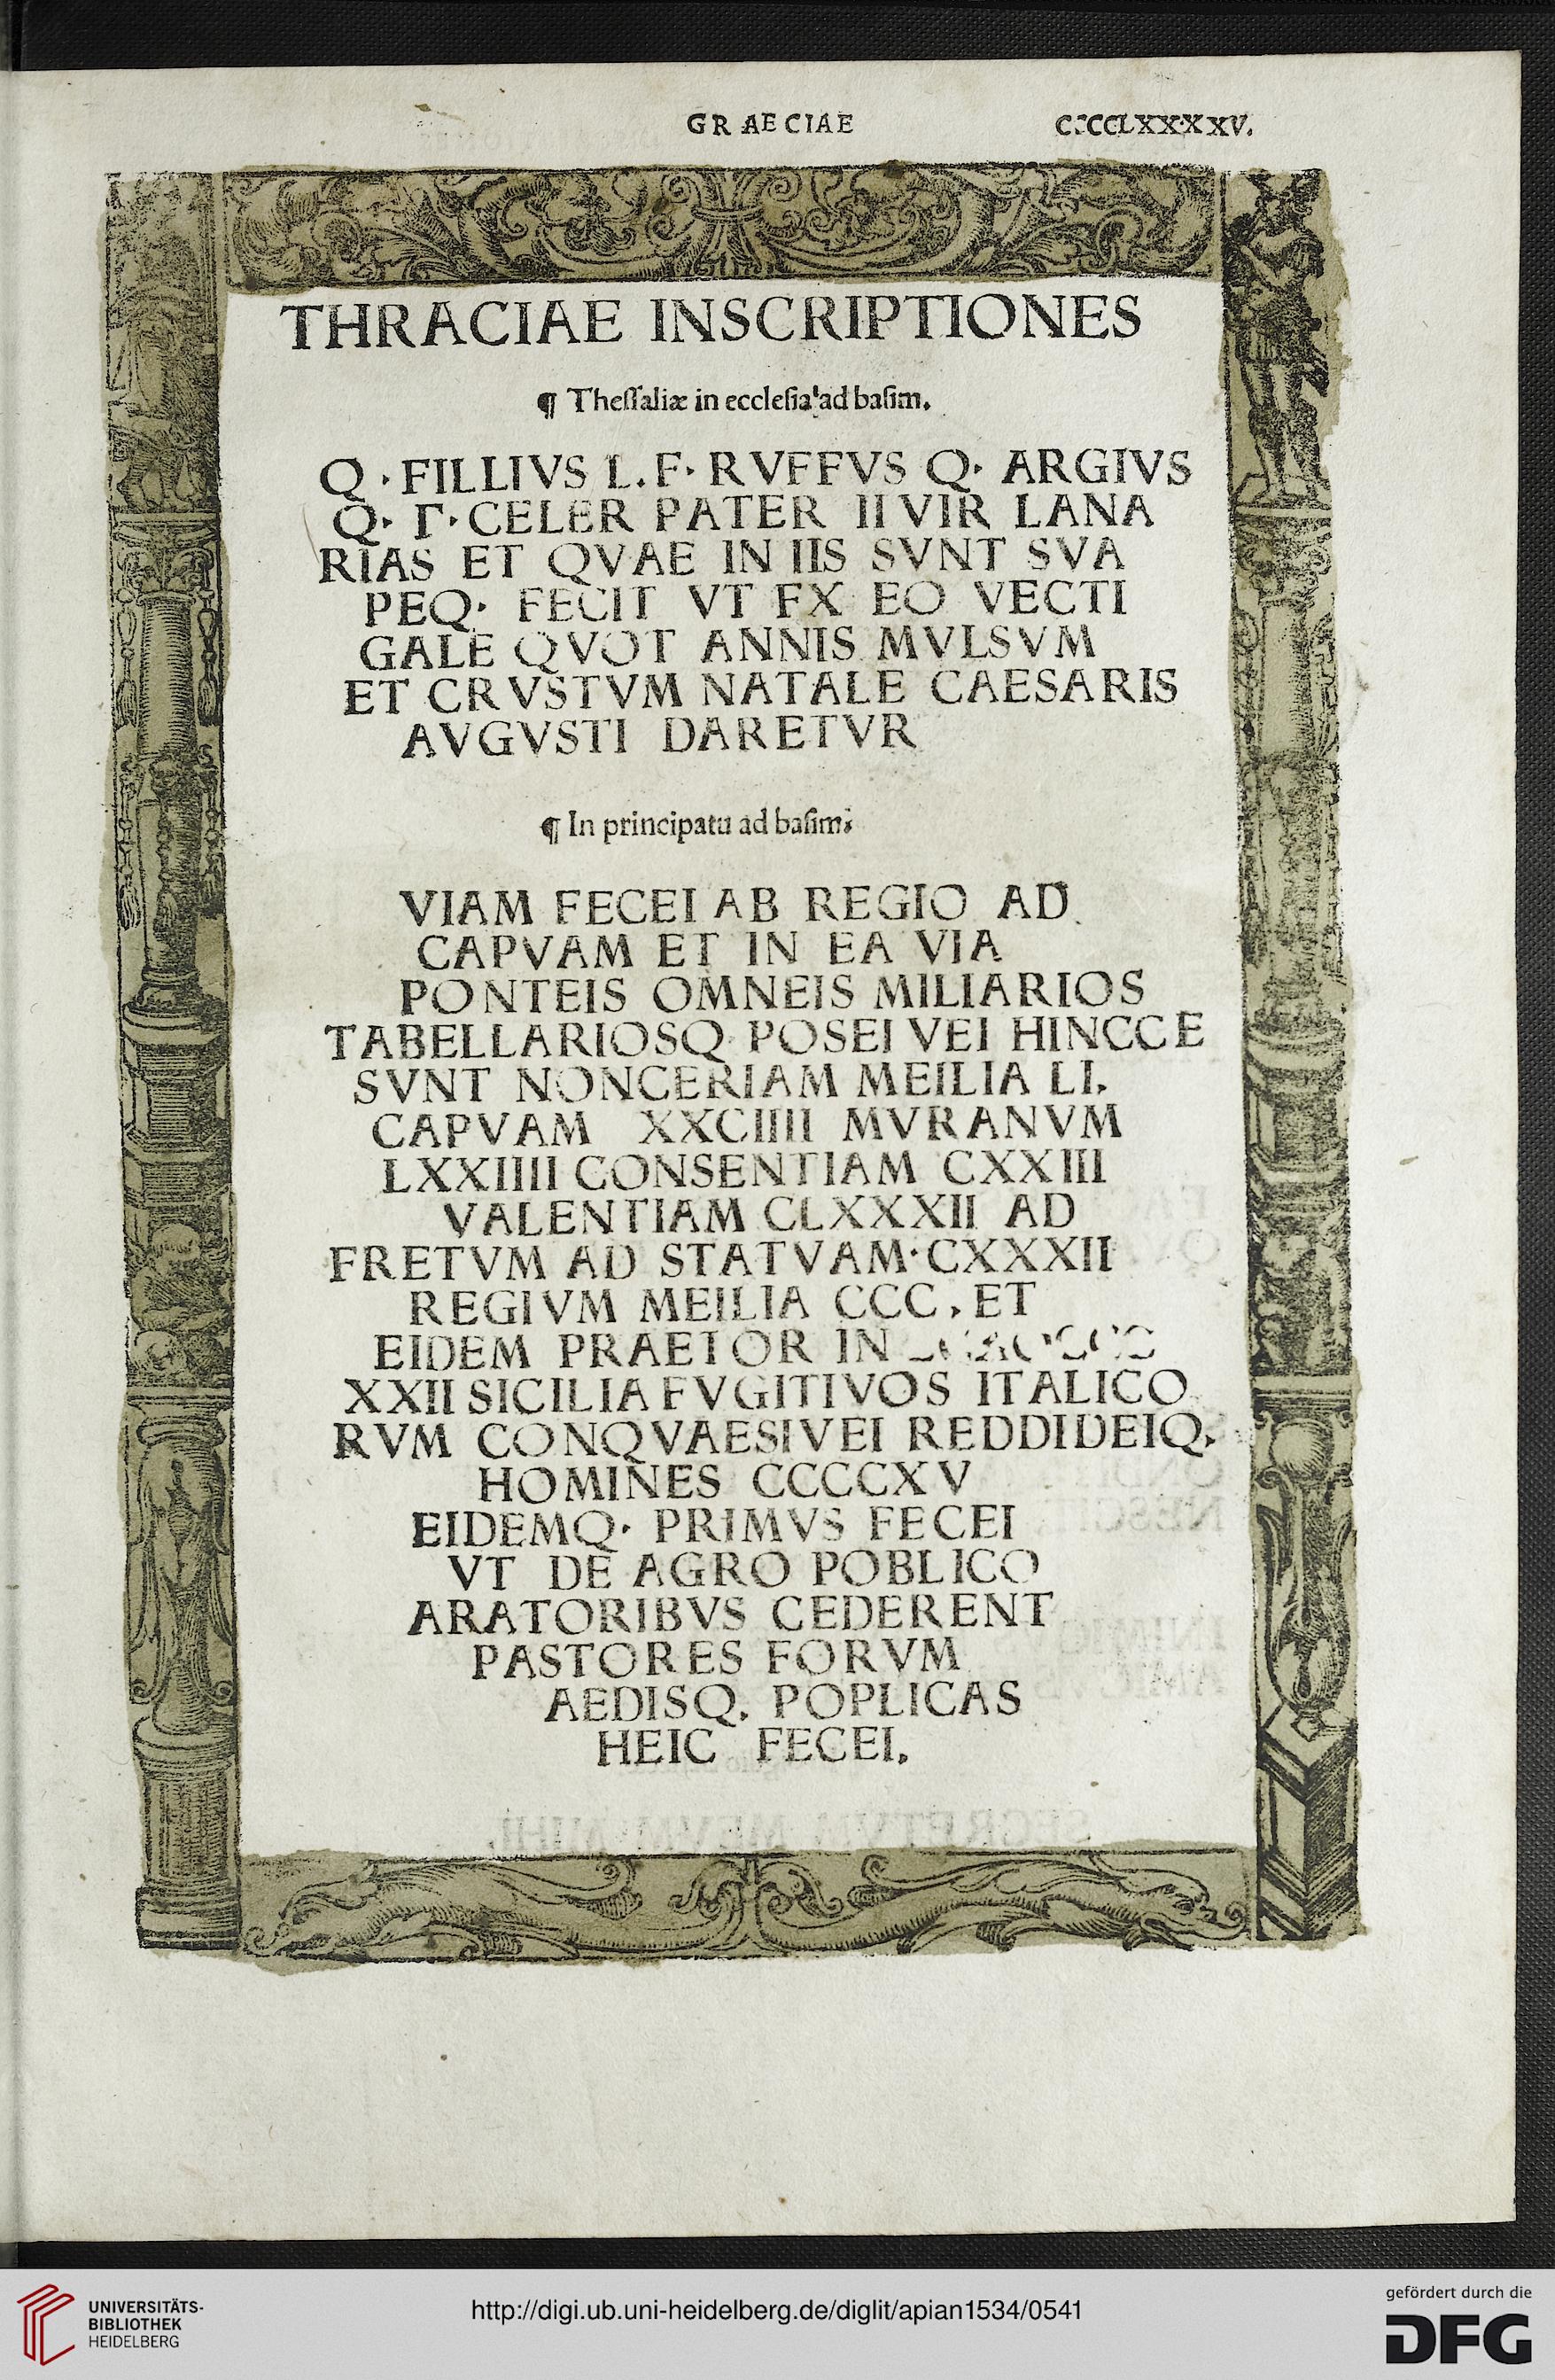 GRAECIAE CCCCLXXXXV.
THRACIAE INSCRIPTIONES
¶ Theſſaliæ in eccleſia ad baſim.
Q · FILLIVS L. F· RVFFVS Q· ARGIVS
Q· Γ· CELER PATER II VIR LANA
RIAS ET QVAE IN IIS SVNT SVA
PEQ· FECIT VT FX EO VECTI
GALE QVOT ANNIS MVLSVM
ET CRVSTVM NATALE CAESARIS
AVGVSTI DARETVR
¶ In principatu ad baſim.
VIAM FECEI AB REGIO AD
CAPVAM ET IN EA VIA
PONTEIS OMNEIS MILIARIOS
TABELLARIOSQ POSEIVEI HINCCE
SVNT NONCERIAM MEILIA LI.
CAPVAM XXCIIII MVRANVM
LXXIIII CONSENTIAM CXXIII
VALENTIAM CLXXXII AD
FRETVM AD STATVAM·CXXXII
REGIVM MEILIA CCC, ET
EIDEM PRAETOR IN
XXII SICILIA FVGITIVOS ITALICO
RVM CONQVAESIVEI REDDIDEIQ.
HOMINES CCCCXV
EIDEMQ· PRIMVS FECEI
VT DE AGRO POBLICO
ARATORIBVS CEDERENT
PASTORES FORVM
AEDISQ. POPLICAS
HEIC FECEI.
UNIVERSITÄTS-
BIBLIOTHEK
HEIDELBERG
http://digi.ub.uni-heidelberg.de/diglit/apian1534/0541
gefördert durch die
DFG